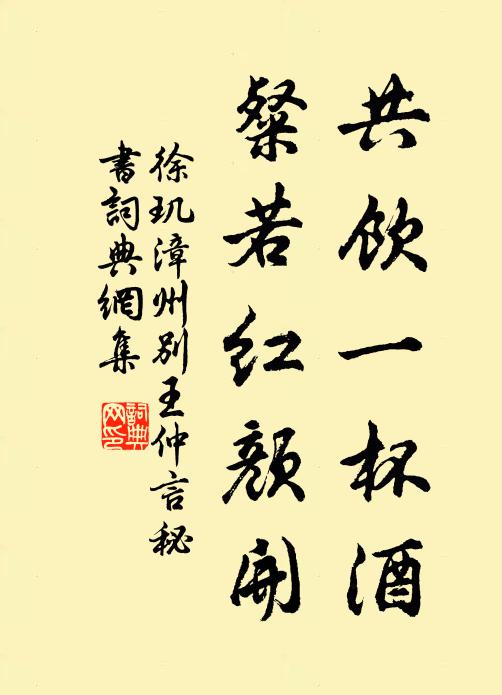 共饮一杯酒
粲若红颜开
徐玑漳州别王仲言秘
书词典網集
詞典
网印